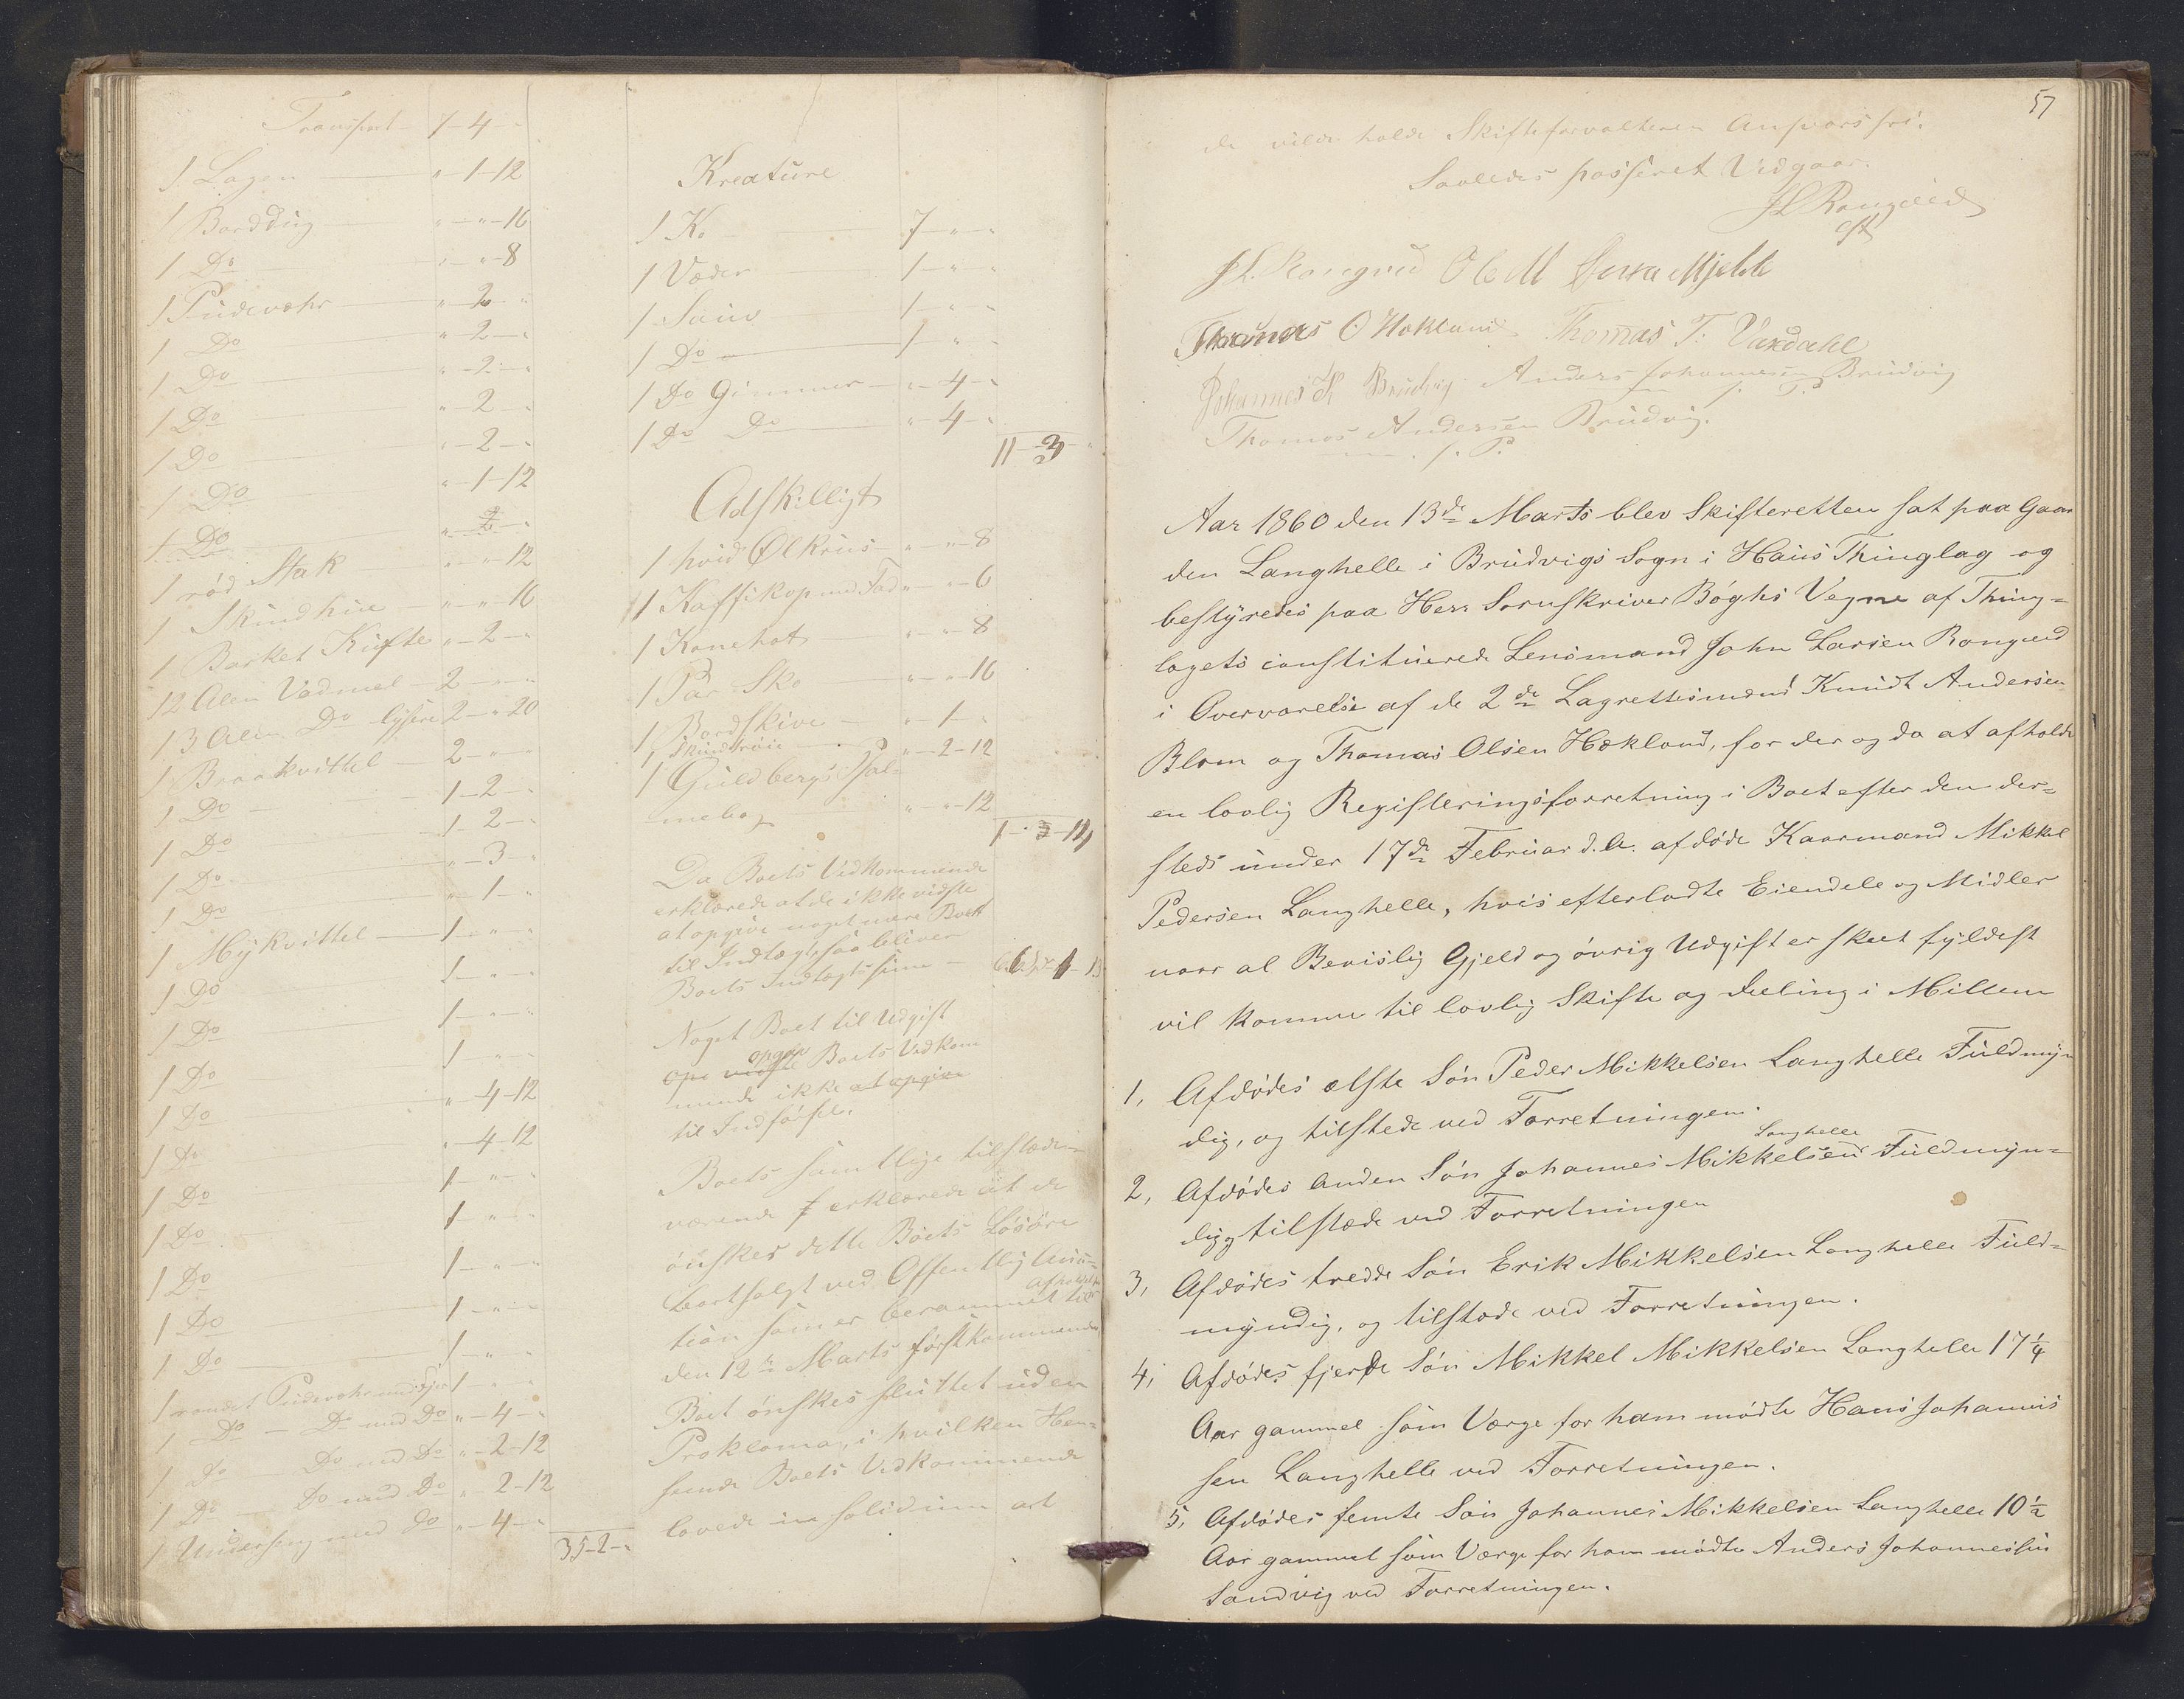 Transport 1-4-"
1 Lagen "-1-12
1 Borddug "-"-16
1 Do "-"-8
1 Pudevahr "-2-"
1 Do "-2-"
1 Do "-2-"
1 Do "-2-"
1 Do "-2-"
1 Do "-1-12
1 Do
1 rød Stak "-"-12
1 Skindhue "-"-16
1 Barket Kufte "-2-"
12 Alen Vadmel 2-"-"
13 Alen Do lysere 2-"-20
1 Braakvittel 2-"-"
1 Do 1-2-"
1 Do 1-2-"
1 Do "-3-"
1 Do "-1-"
1 Mykvittel 1-"-"
1 Do 1-"-"
1 Do 1-"-"
1 Do 1-"-"
1 Do "-4-12
1 Do "-4-12
1 Do 1-"-"
1 Do 1-"-"
1 Do 1-"-"
1 Do 1-"-"
1 Do 1-"-"
1 Pudevahr med Fjer 1-"-"
1 Do - Do med Do "-4-"
1 Do Do med Do "-2-12
1 Do Do med Do "-2-12
1 Underseng med Do "-4-"
35-2-"
Kreature
1 Ko 7-"-"
1 Væder 1-"-"
1 Sauv 1-"-"
1 Do 1-"-"
1 Do Gimmer "-4-"
1 Do Do "-4-"
11-3-"
Adskilligt
1 hvid Ølkrus "-"-8
1 Kaffikop med Fad "-"-6
1 Konehat "-"-8
1 Par Sko "-"-16
1 Bordskive "-1-"
1 Skindtrøie "-2-12
1 Guldbergs Psal-
mebog "-"-12
1-3-12
Da Boets Vedkommende
erklærede at de ikke vidste
at opgive noget mere Boet
til Indtægt saa bliver
Boets Indtægtssum
Noget Boet til Udgift
opgav
Boets Vedkom
mende ikke at opgive
til Indførsel.
Boets samtlige tilstæde-
værende erklærede at de
ønsker dette Boets Løsøre
bortsolgt ved Offentlig Auk-
afholdt
tion som er berammet til
den 12te Marts førstkommende
Boet ønskes sluttet uden
Proklama, i hvilken Hen-
seende Boets Vedkommende
lovede in solidum at
57
de vilde holde Skifteforvalteren Ansvarsfri.
Saaledes passeret Vedgaar.
J L Rongved
cst
J L Rongved Ole M Mjelde
Thomas O Hokland Thomas T. Vaxdahl
Johannes K Brudvig Anders Johannesen Brudvig
m. f. P.
Thomas Andersen Brudvig.
m. f. P.
Aar 1860 den 13de Marts blev Skifteretten sat paa Gaar
den Langhelle i Brudvigs Sogn i Haus Thinglag og
bestyredes paa Herr Sorenskriver Bøghs Vegne af Thing-
lagets constituerede Lensmand John Larsen Rongved
i Overværelse af de 2de Lagrettesmænd Knudt Andersen
Blom og Thomas Olsen Hækland, for der og da at afholde
en lovlig Registeringsforretning i Boet efter den der-
steds under 17de Februar d.A. afdøde Kaarmand Mikkel
Pedersen Langhelle, hvis efterladte Eiendele og Midler
naar al Bevislig Gjeld og øvrig Udgift er skeet fyldest
vil komme til lovlig Skifte og deeling i Millem
1, Afdødes ælste Søn Peder Mikkelsen Langhelle Fuldmyn
dig, og tilstede ved Forretningen.
Langhelle
2, Afdødes Anden Søn Johannes Mikkelsen Fuldmyn-
dig tilstæde ved Forretningen
3, Afdødes tredde Søn Erik Mikkelsen Langhelle Fuld-
myndig, og tilstæde ved Forretningen.
4, Afdødes fjerde Søn Mikkel Mikkelsen Langhelle 17¼
Aar gammel som Værge for ham mødte Hans Johannes
sen Langhelle ved Forretningen.
5, Afdødes femte Søn Johannes Mikkelsen Langhelle 10½
Aar gammel som Værge for ham mødte Anders Johannessen
Sandvig ved Forretningen.